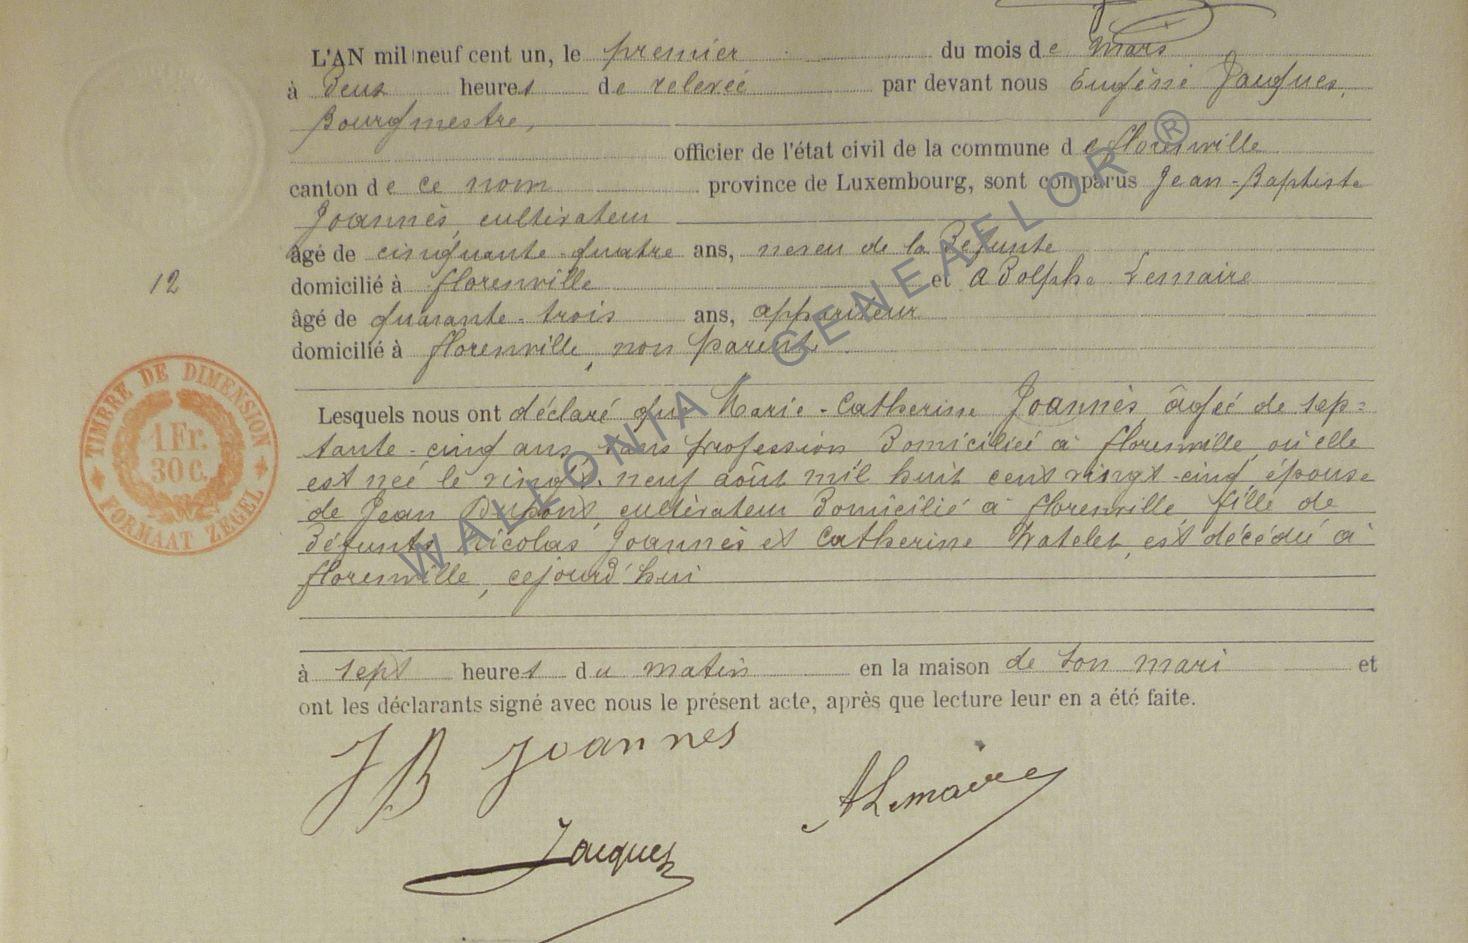 L'AN mil neuf cent un, le premier du mois de mars
à deux heures de relevée par devant nous Eugène Jacques,
Bourgmestre,
officier de l'état civil de la commune de florenville
canton de ce nom province de Luxembourg, sont comparus Jean-Baptiste
Joannès, cultivateur
âgé de cinquante-quatre ans, neveu de la défunte
domicilié à florenville et Adolphe Lemaire
12
âgé de quarante-trois ans, appariteur
domicilié à florenville, non parent.
TIMBRE DE DIMENSION
1 Fr.
30 C.
FORMAAT ZEGEL
Lesquels nous ont déclaré que Marie-Catherine Joannès, âgée de sep=
tante-cinq ans, sans profession domiciliée à florenville, où elle
est née le vingt-neuf août mil huit cent vingt-cinq, épouse
de Jean Dupont, cultivateur domicilié à florenville fille de
défunts Nicolas Joannès et Catherine Watelet, est décédée à
florenville, cejourd'hui
à sept heures du matin en la maison de son mari et
ont les déclarants signé avec nous le présent acte, après que lecture leur en a été faite.
JB Joannes
ALemaire
Jacques
WALLONIA GENEAFLOR ®